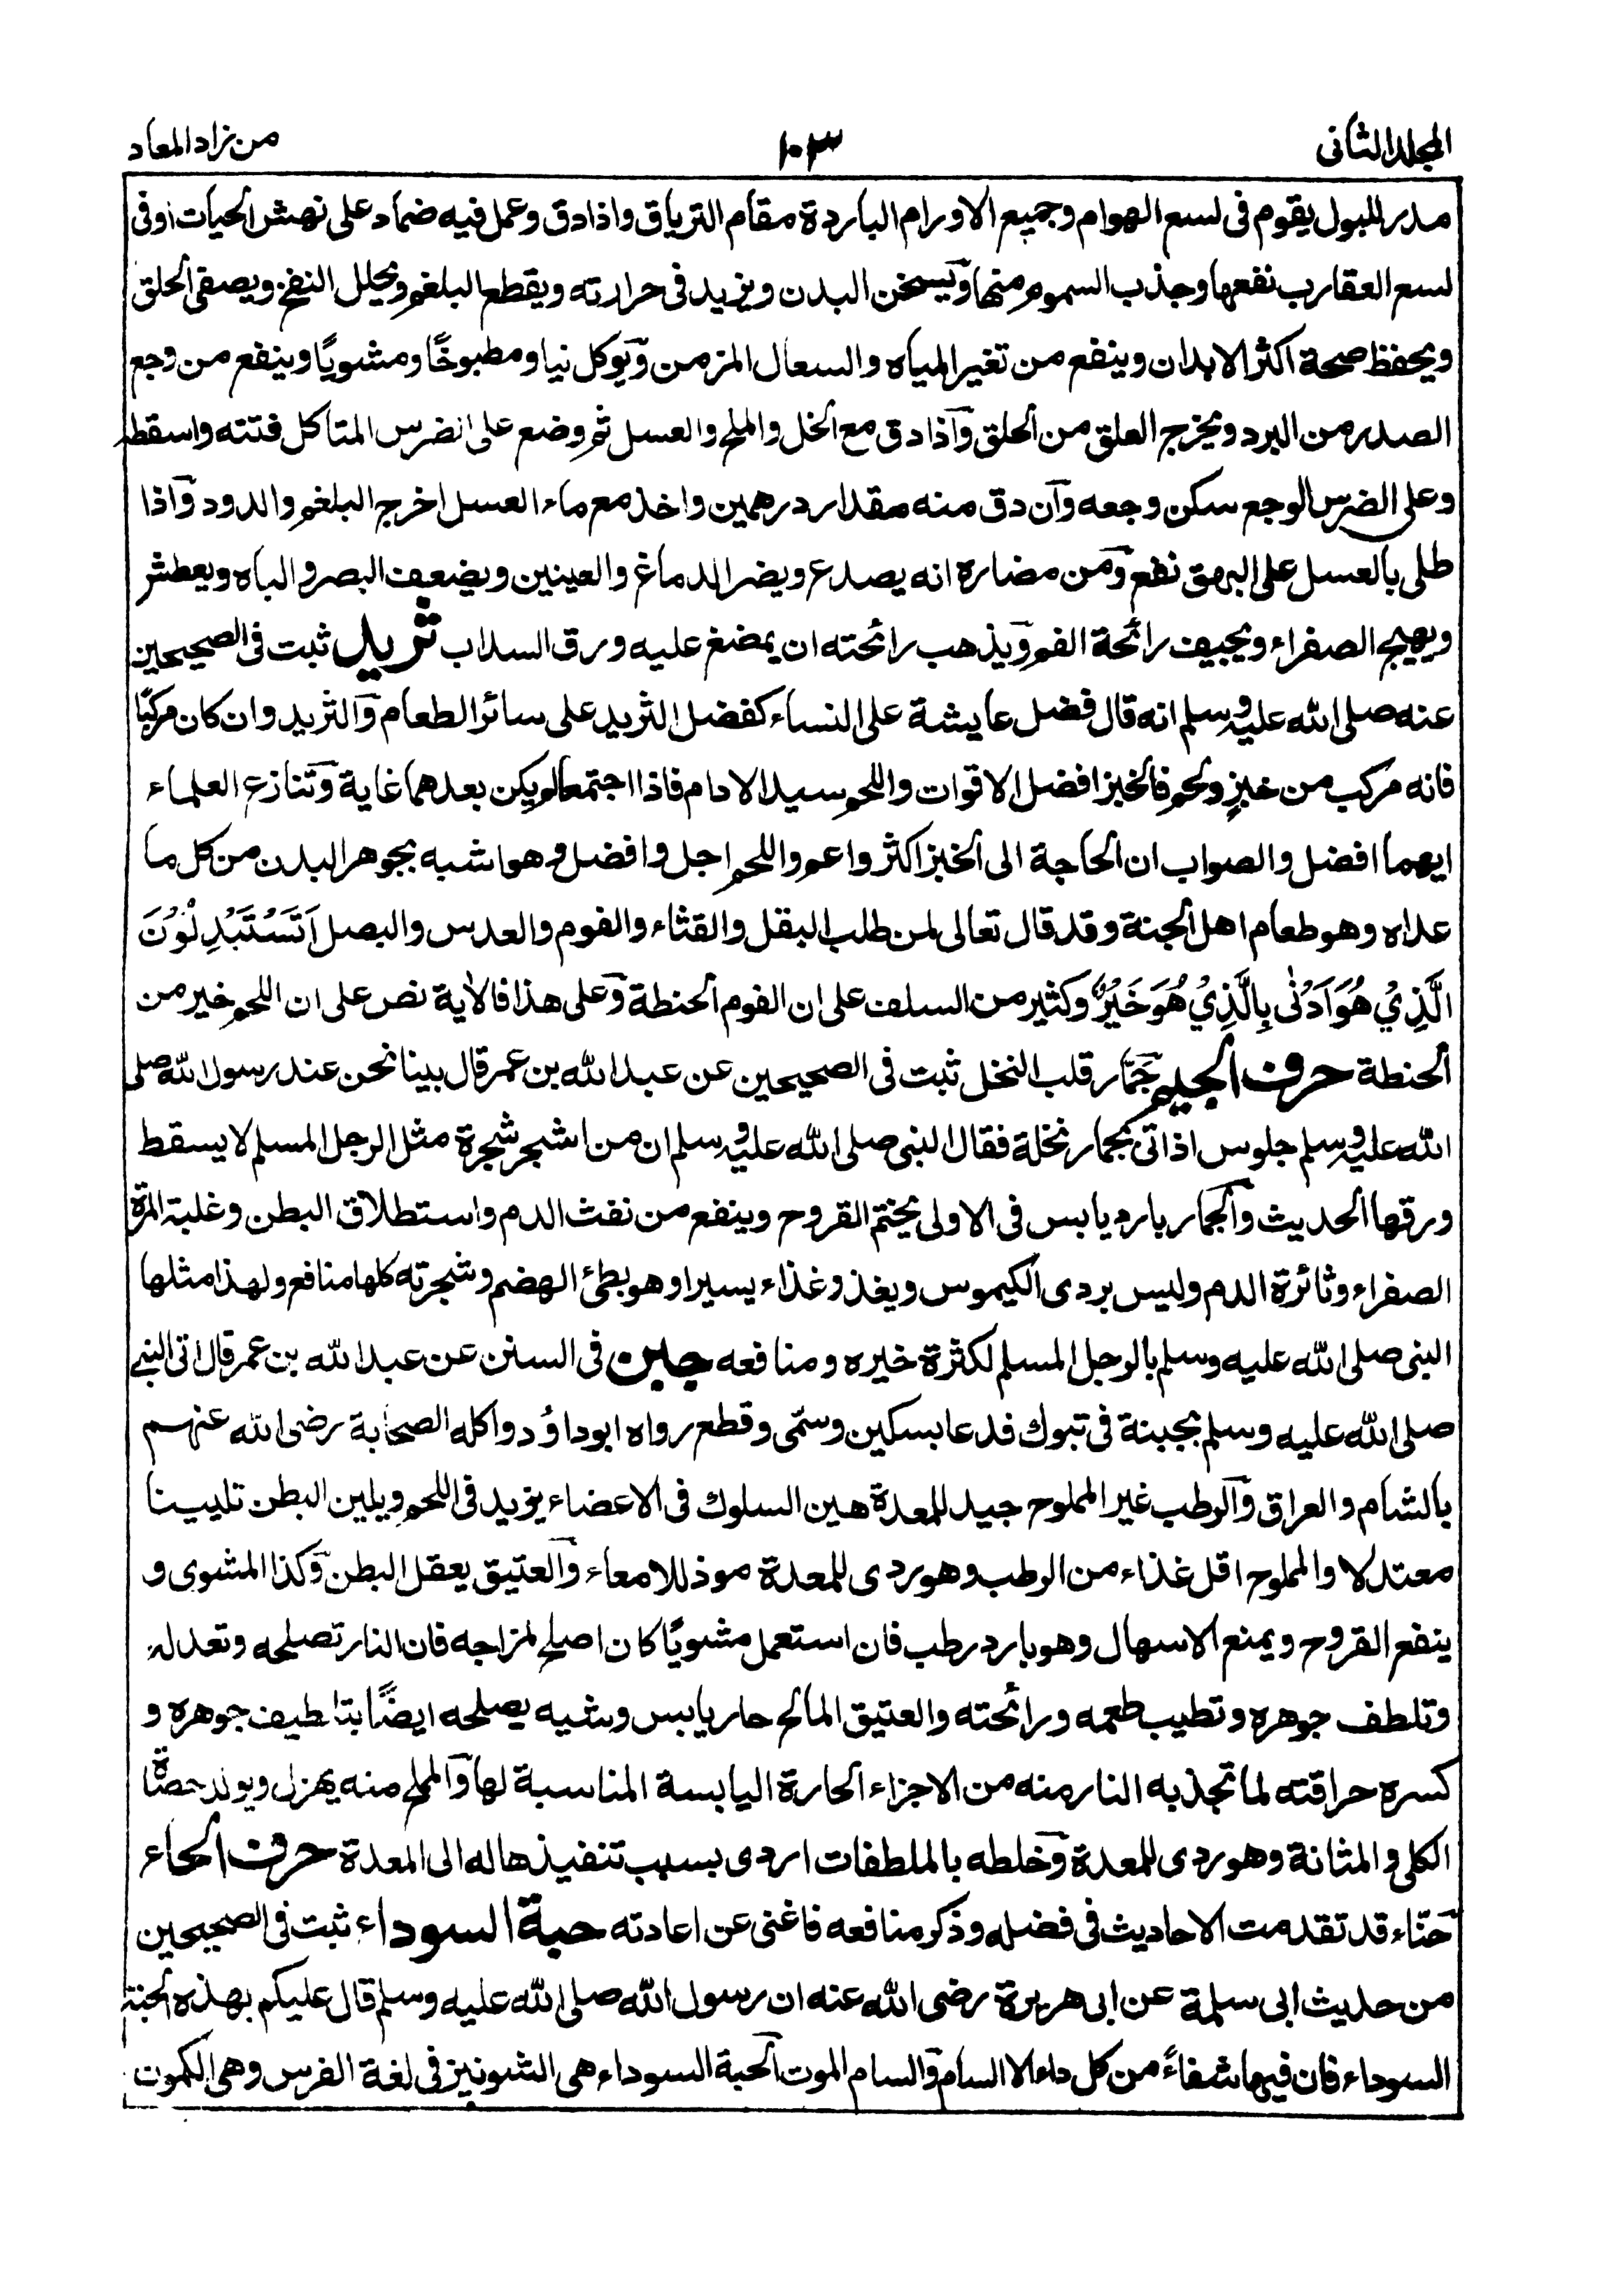 المجلد الثانى
١٠٣
من زاد المعاد
مدر للبول يقوم فى لسع الهوام وجميع الاورام الباردة مقام الترياق واذا دق وعمل فيه ضماد على نهش الحيات اوفى
لسع العقارب نفعها وجذب السموم منها ويسخن البدن ويزيد فى حرارته ويقطع البلغم ويحلل النفخ ويصفى الحلق
ويحفظ صحة اكثر الابدان وينفع من تغير المياه والسعال المزمن ويوكل نيا ومطبوخًا ومشويًا وينفع من وجع
الصدر من البرد ويخرج العلق من الحلق وآذا دق مع الخل والملح والعسل ثم وضع على الضرس المتاكل فتته واسقطه
وعلى الضرس الوجع سكن وجعه وآن دق منه مقدار درهمين واخذ مع ماء العسل اخرج البلغم والدود وآذا
طلى بالعسل على البهق نفع ومن مضاره انه يصدع ويضر الدماغ والعينين ويضعف البصر والباه ويعطش
ويهيج الصفراء ويجيف رائحة الفم ويذهب رائحته ان يمضغ عليه ورق السداب ثريد ثبت فى الصحيحين
عنه صلى الله عليه وسلم انه قال فضل عايشة على النساء كفضل الثريد على سائر الطعام وآلثريد وان كان مركبًا
فانه مركب من خبزٍ ولحم فالخبز افضل الاقوات واللحم سيد الادام فاذا اجتمعا لم يكن بعدهما غاية وتنازع العلماء
ايهما افضل والصواب ان الحاجة الى الخبز اكثر واعم واللحم اجل وافضل وهو اشبه بجوهر البدن من كل ما
عداه وهو طعام اهل الجنة وقد قال تعالى لمن طلب البقل والقثاء والفوم والعدس والبصل اَتَسْتَبْدِلُوْنَ
الَّذِيْ هُوَ اَدْنٰى بِالَّذِيْ هُوَ خَيْرٌ وكثير من السلف على ان الفوم الحنطة وعلى هذا فالاٰية نص على ان اللحم خير من
الحنطة حرف الجيم جَمّار قلب النخل ثبت فى الصحيحين عن عبد الله بن عمر قال بينا نحن عند رسول الله صلى
الله عليه وسلم جلوس اذ اتى بجمار نخلة فقال النبى صلى الله عليه وسلم ان من الشجر شجرة مثل الرجل المسلم لا يسقط
ورقها الحديث وآلجمار بارد يابس فى الاولى يختم القروح وينفع من نفث الدم واستطلاق البطن وغلبة المرة
الصفراء وثائرة الدم وليس بردى الكيموس ويغذو غذاء يسيرا وهو بطئ الهضم وشجرته كلها منافع ولهذا مثلها
النبى صلى الله عليه وسلم بالرجل المسلم لكثرة خيره ومنافعه جبن فى السنن عن عبد الله بن عمر قال اتى النبى
صلى الله عليه وسلم بجبنة فى تبوك فدعا بسكين وسمّى وقطع رواه ابو داؤد واكله الصحابة رضى الله عنهم
بالشام والعراق وآلرطب غير المملوح جيد للمعدة هين السلوك فى الاعضاء يزيد فى اللحم ويلين البطن تليينا
معتدلا والمملوح اقل غذاء من الرطب وهو ردى للمعدة موذ للامعاء وآلعتيق يعقل البطن وكذا المشوى و
ينفع القروح ويمنع الاسهال وهو بارد رطب فان استعمل مشويًا كان اصلح لمزاجه فان النار تصلحه وتعدله
وتلطف جوهره وتطيب طعمه ورائحته والعتيق المالح حار يابس وشيه يصلحه ايضًا بتلطيف جوهره و
كسره حراقته لما تجذبه النار منه من الاجزاء الحارة اليابسة المناسبة لها وآلمملح منه يهزل ويولد حصاة
الكلى والمثانة وهو ردى للمعدة وخلطه بالملطفات اردى بسبب تنفيذها له الى المعدة حرف الحاء
حنّاء قد تقدمت الاحاديث فى فضله وذكر منافعه فاغنى عن اعادته حبة السوداء ثبت فى الصحيحين
من حديث ابى سلمة عن ابى هريرة رضى الله عنه ان رسول الله صلى الله عليه وسلم قال عليكم بهذه الحبة
السوداء فان فيها شفاءً من كل داء الا السام والسام الموت آلحبة السوداء هى الشونيز فى لغة الفرس وهى الكمون